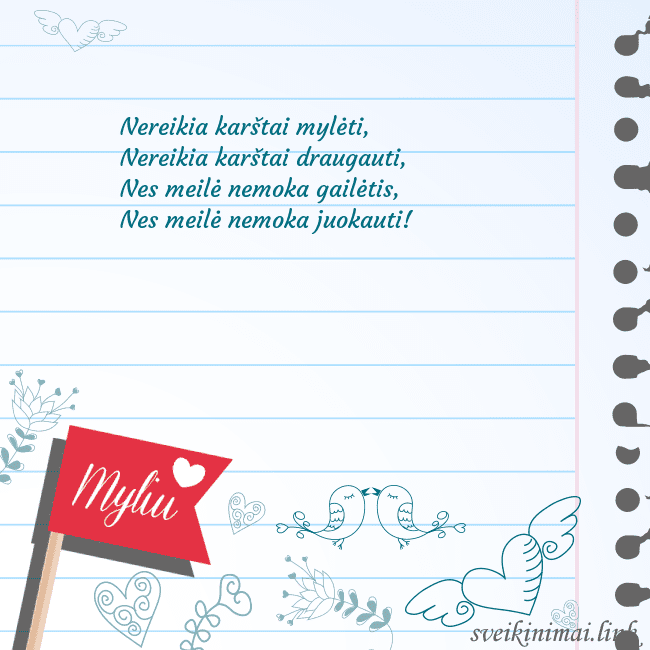 Nereikia karštai mylėti,
Nereikia karštai draugauti,
Nes meilė nemoka gailėtis,
Nes meilė nemoka juokauti!
Myliu
sveikinimai.link